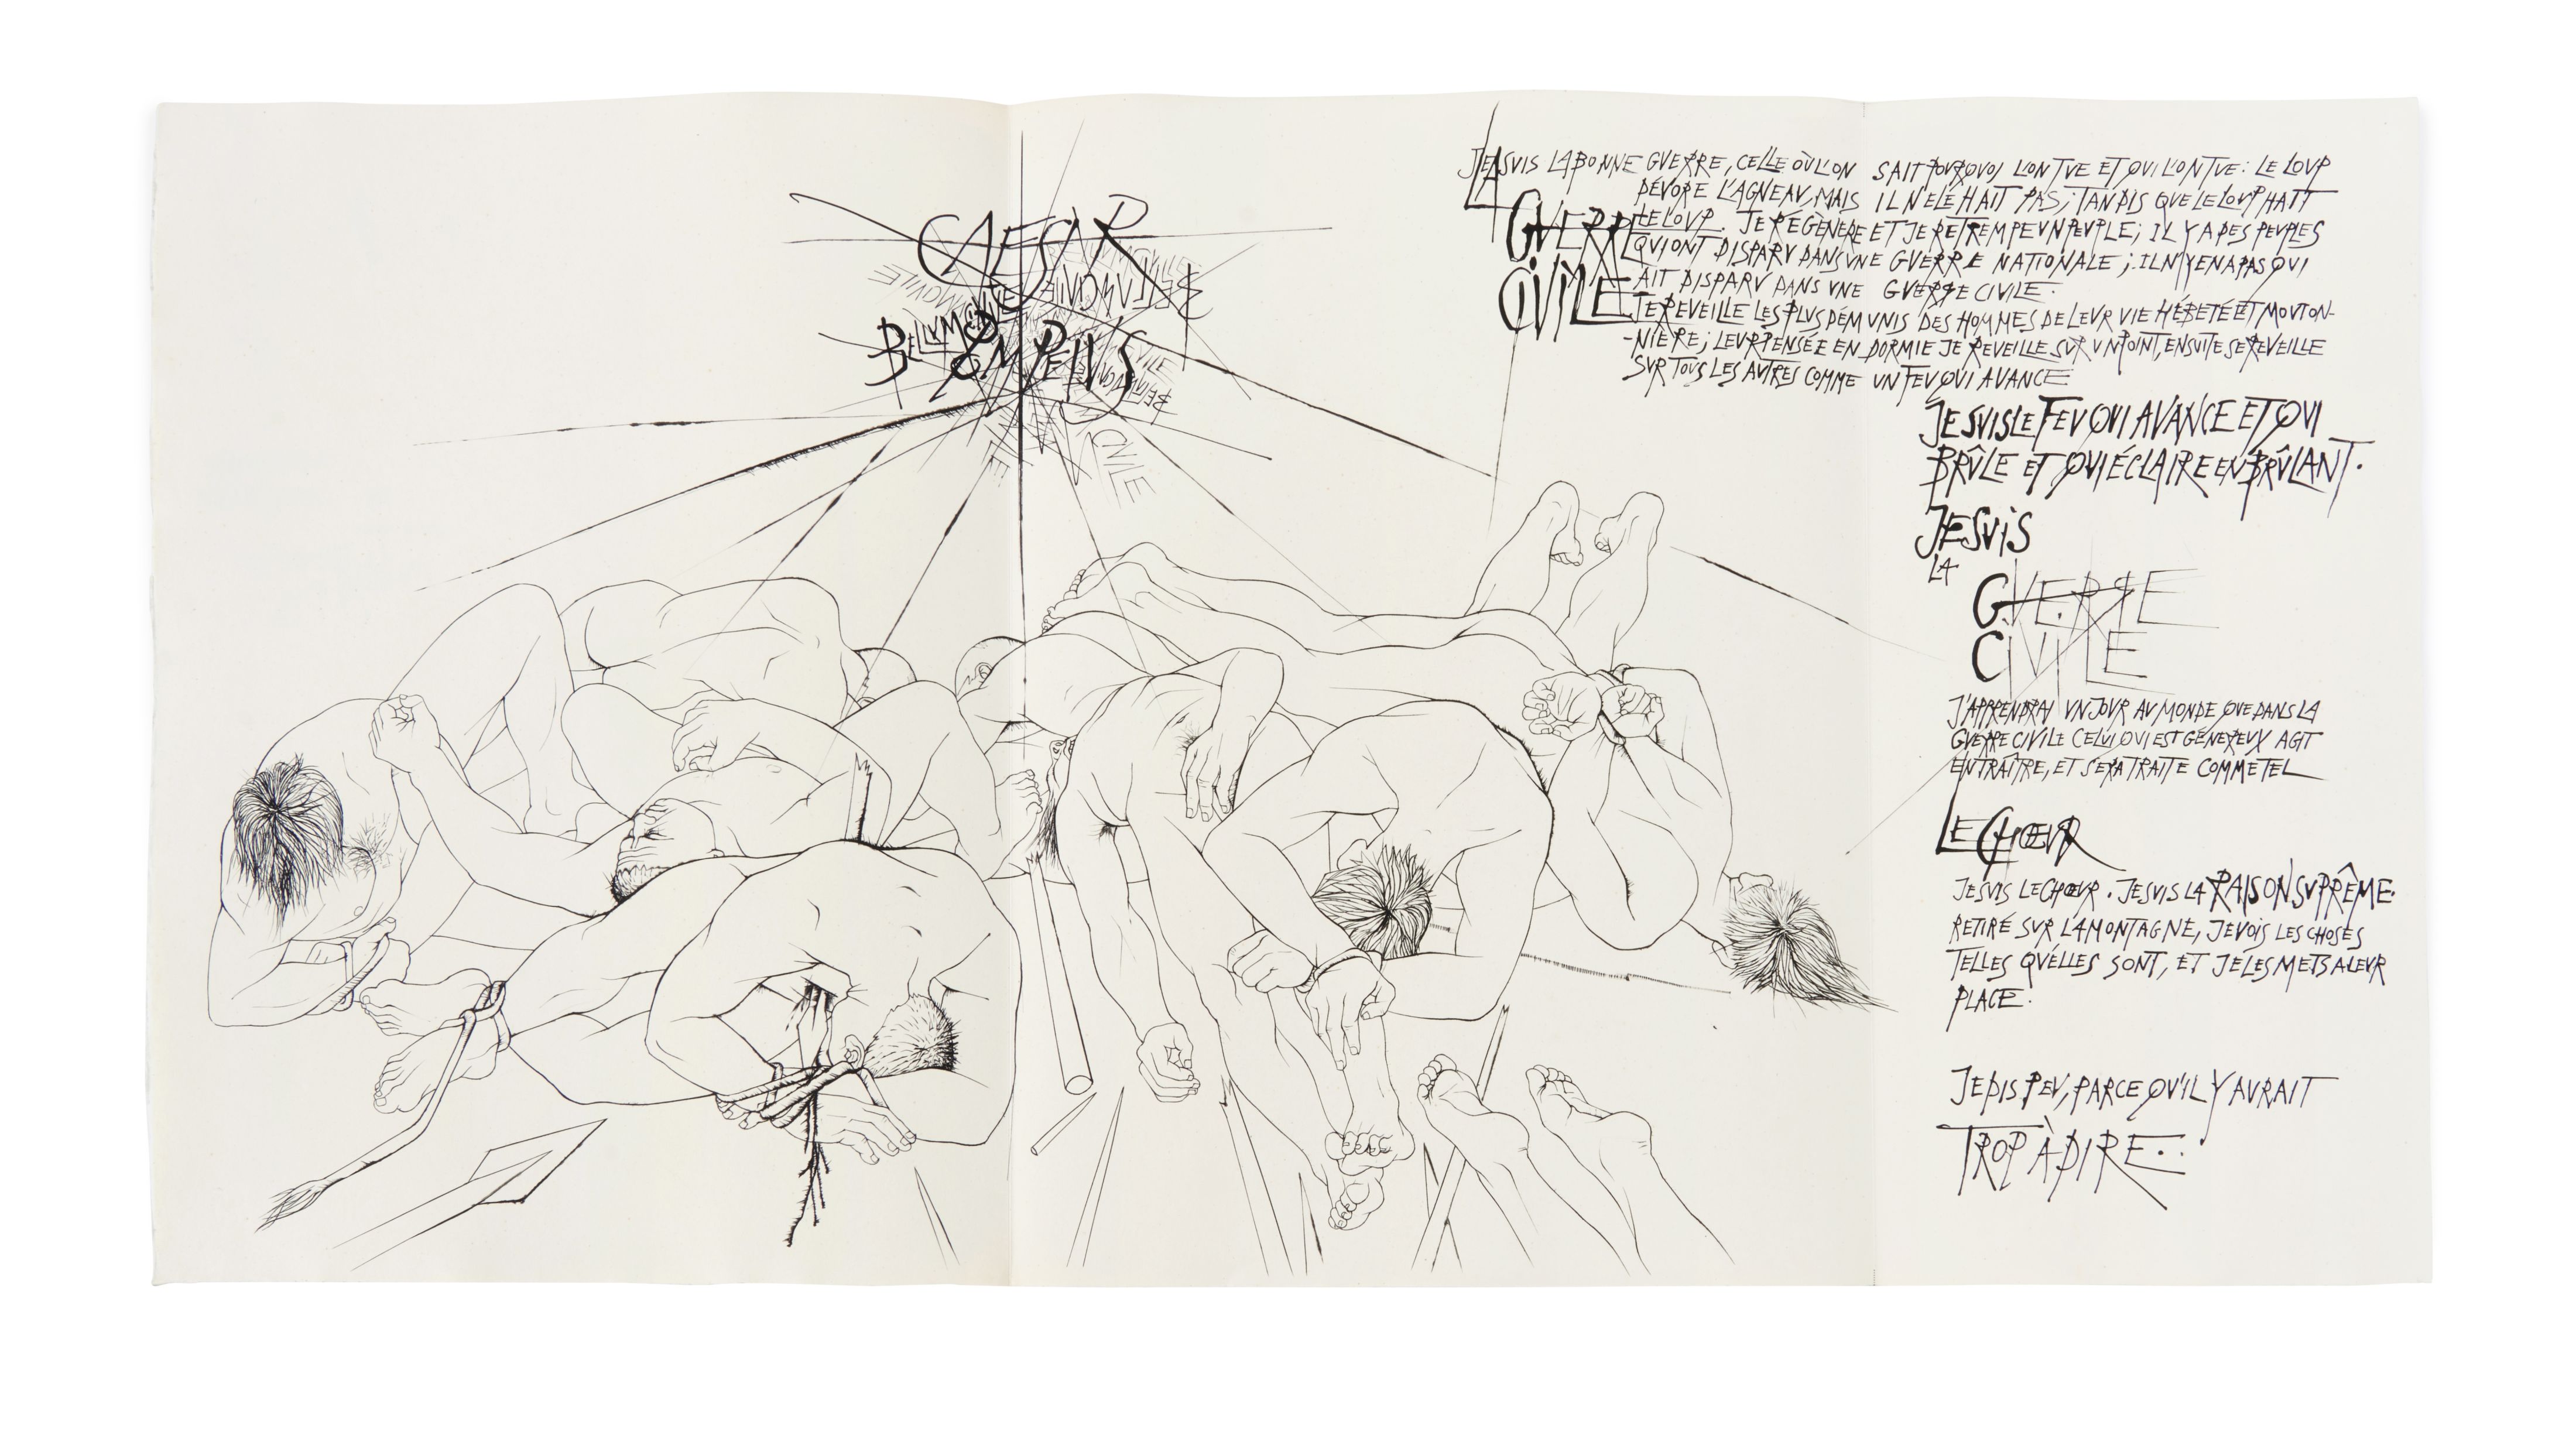 CAESAR
BELLUM CIVILE
BELLUMQUE
POMPEIUS
BELLUMQUE
CIVILE
JE SVIS LA BONNE GVERRE, CELLE OÙ L'ON SAIT POVRQVOI L'ON TVE ET QVI L'ON TVE : LE LOVP
LA DÉVORE L'AGNEAV, MAIS IL NE LE HAIT PAS ; TANDIS QVE LE LOVP HAIT
GVERRE LE LOVP. JE RÉGÉNÈRE ET JE RETREMPE VN PEVPLE ; IL Y A DES PEVPLES
QVI ONT DISPARV DANS VNE GVERRE NATIONALE ; IL N'Y EN A PAS QVI
CIVILE AIT DISPARV DANS VNE GVERRE CIVILE.
JE REVEILLE LES PLVS DÉMVNIS DES HOMMES DE LEVR VIE HÉBETÉE ET MOVTON-
-NIÈRE ; LEVR PENSÉE ENDORMIE JE REVEILLE SVR VN POINT, ENSUITE SE REVEILLE
SVR TOVS LES AVTRES COMME VN FEV QVI AVANCE
JE SVIS LE FEV QVI AVANCE ET QVI
BRÛLE ET QVI ÉCLAIRE EN BRÛLANT.
JE SVIS
LA
GVERRE
CIVILE
J'APPRENDRAI VN JOVR AV MONDE QVE DANS LA
GVERRE CIVILE CELVI QVI EST GÉNEREVX AGIT
EN TRAÎTRE, ET SERA TRAITÉ COMME TEL
LE CHŒVR
JE SVIS LE CHŒVR. JE SVIS LA RAISON SVPRÊME.
RETIRÉ SVR LA MONTAGNE, JE VOIS LES CHOSES
TELLES QV'ELLES SONT, ET JE LES METS A LEVR
PLACE.
JE DIS PEV, PARCE QV'IL Y AVRAIT
TROP À DIRE...